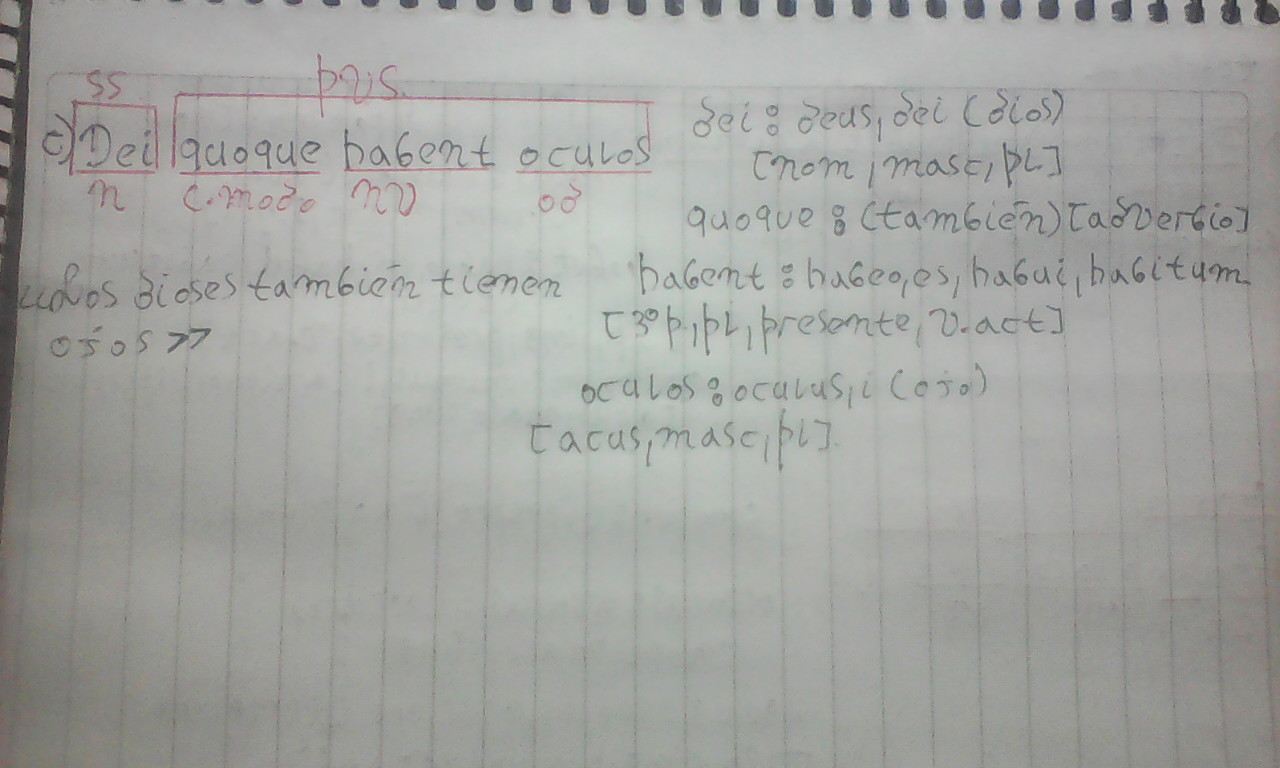 ss pvs.
c) Dei quoque habent oculos
n c.modo nv od
«Los dioses también tienen
ojos»
dei: deus, dei (dios)
[nom, masc, pl]
quoque: (también) [adverbio]
habent: habeo, es, habui, habitum
[3º p, pl, presente, v.act]
oculos: oculus, i (ojo)
[acus, masc, pl].